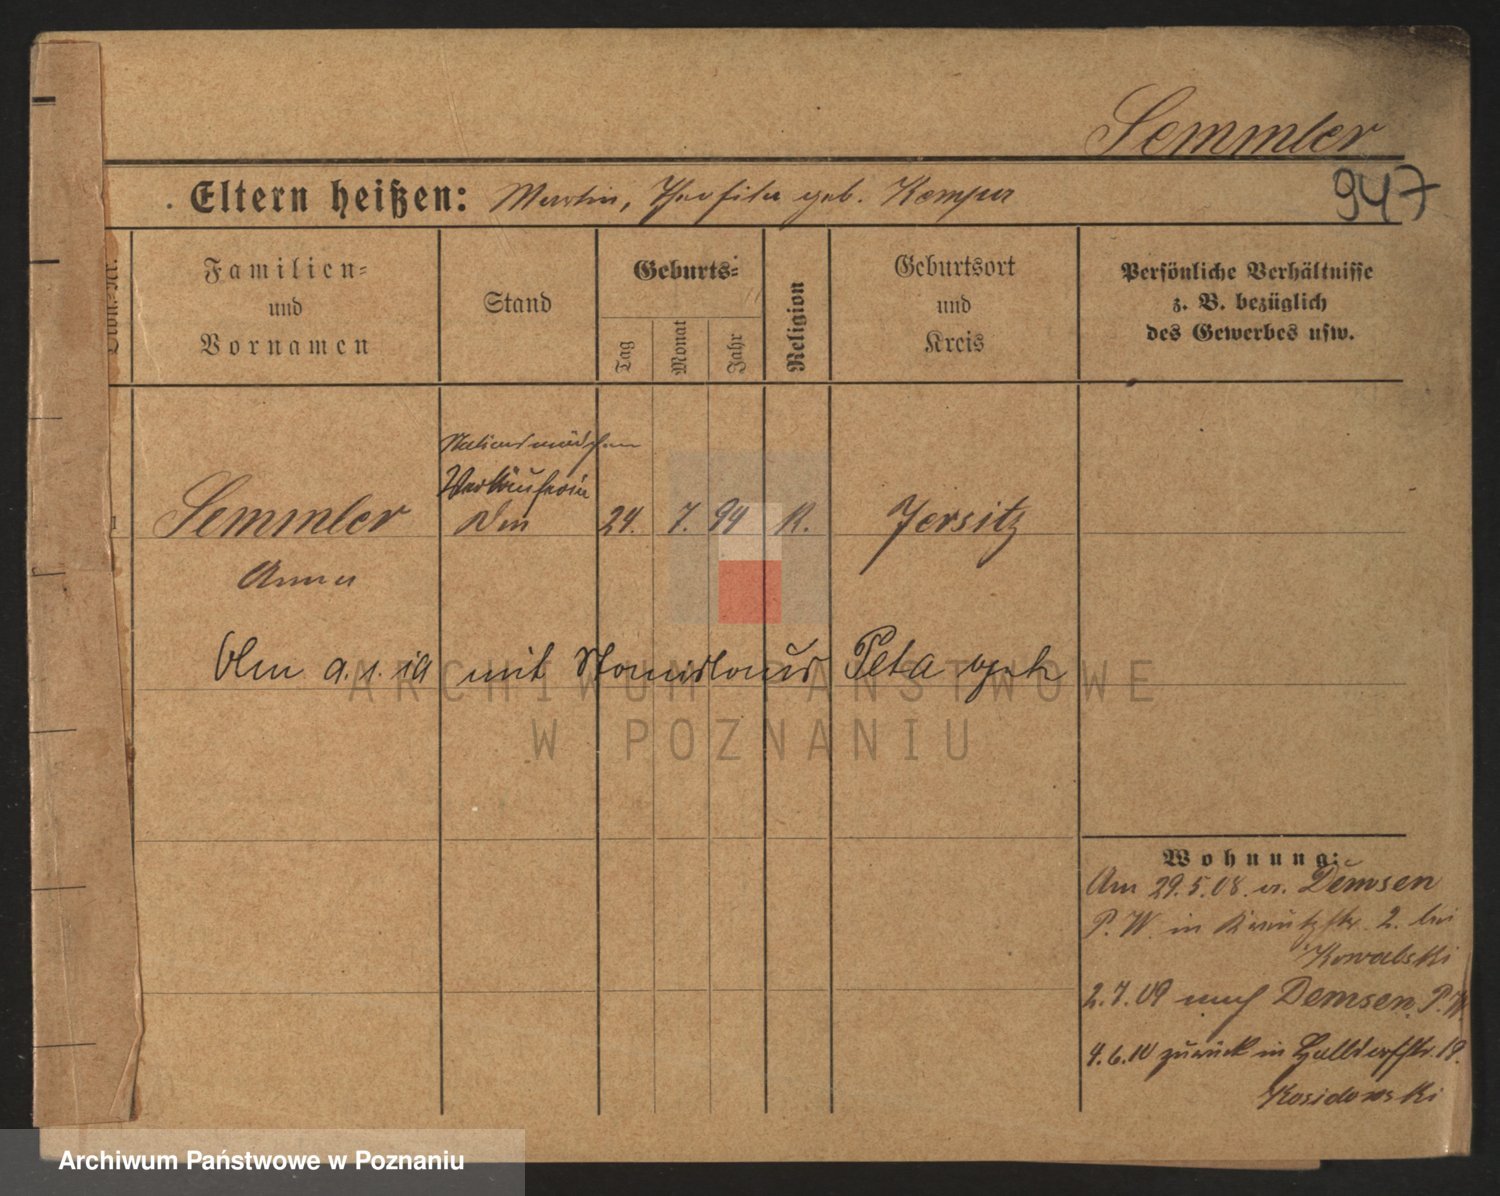 Semmler
947
Eltern heißen: Martin, Theofila geb. Kempa
Familien=
und
Vornamen
Stand
Geburts=
Tag
Monat
Jahr
Religion
Geburtsort
und
Kreis
Persönliche Verhältnisse
z. B. bezüglich
des Gewerbes usw.
Verkäuferin
Semmler
24. 7. 94 K. Jersitz
Anna
mit Stanislaus Peta
ARCHIWUM PAŃSTWOWE
W POZNANIU
Wohnung:
Am 29.5.08. v. Demsen
P. W. in 2. bei
Kowalski
2.7.09 nach Demsen P. W.
4.6.10 zurück in 19.
Kosidowski
Archiwum Państwowe w Poznaniu